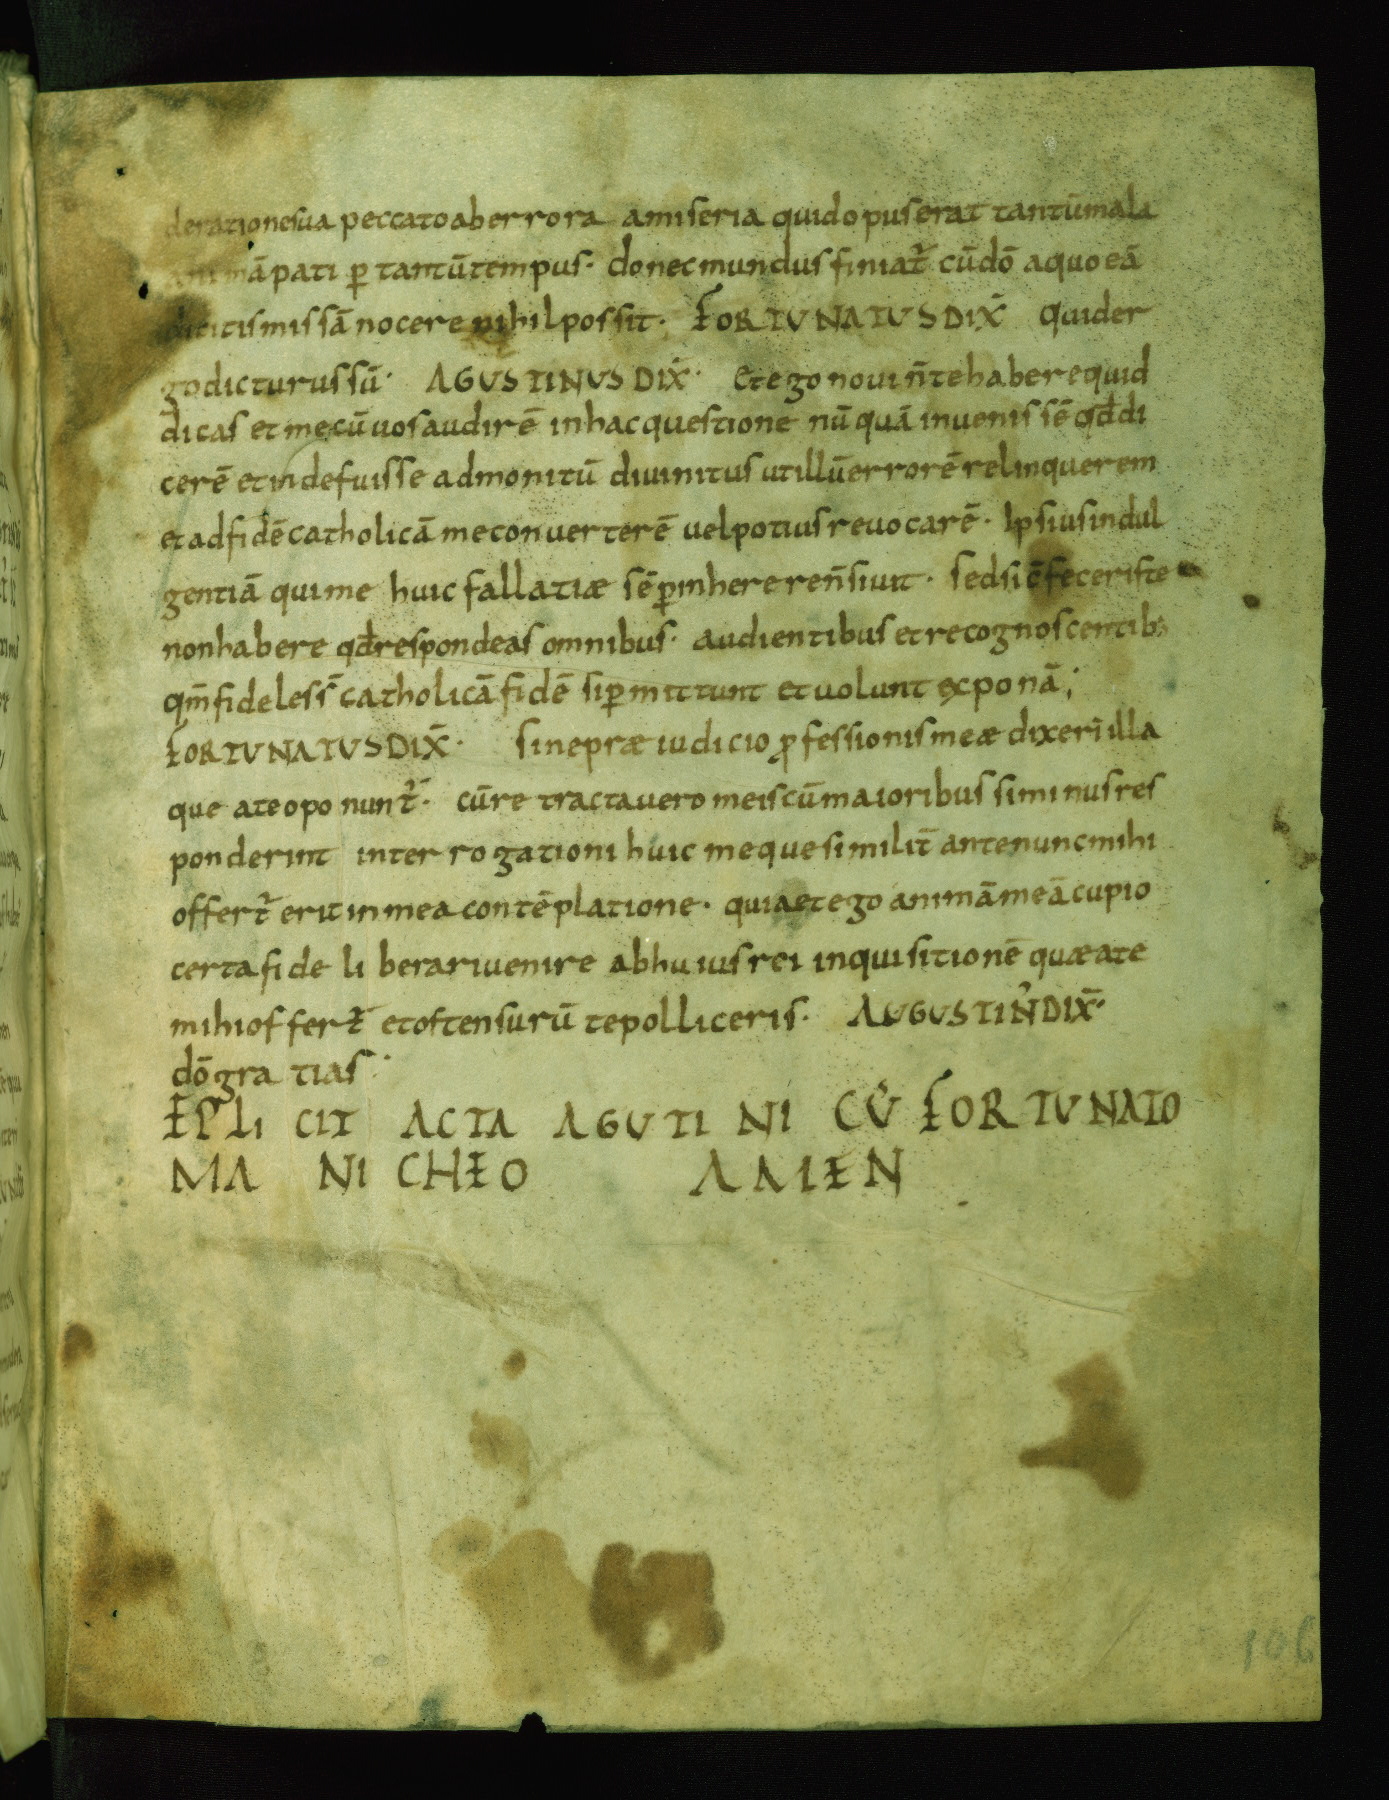 derationesua peccatoaberrora amiseria quidopuserat tantūmala
animā pati ꝑ tantūtempus· donecmundus finiat᷑ cūdō aquoeā
dicitismissā nocere nihilpossit· FORTUNATUS DIX̄ Quider
godicturussū· AGUSTINUS DIX̄· Etego noui n̄tehaberequid
dicas et mecū uosaudirē inhacquestione nū quā inuenissē qđdi
cerē etindefuisse admonitū diuinitus utillūerrorērelinquerem
etadfidēcatholicā meconuerterē uelpotiusreuocarē· Ipsiusindul
gentiā quime huic fallatiæ sēꝑinhereren̄siuit· sedsic̄feceriste
nonhabere qđrespondeas omnibus· audientibus etrecognoscentib;
qm̄fideless̄ catholicā fidē siꝑmittunt etuolunt exponā;
FORTUNATUS DIX̄· sinepræ iudicio ꝓfessionismeæ dixerī illa
que ateopo nunt᷑· cūre tractauero meiscūmaioribus siminusres
ponderint inter rogationi huic mequesimilit̄ antenuncmihi
offert᷑ eritinmea contēplatione· quiaetego animāmeācupio
certafide li berariuenire abhuiusrei inquisitionē quæate
mihioffert᷑ etostensurū tepolliceris· AUGUSTIN̄ DIX̄·
dōgra tias·
EPLI CIT ACTA AGUTI NI CŪ FORTUNATO
MA NI CHEO AMEN
106